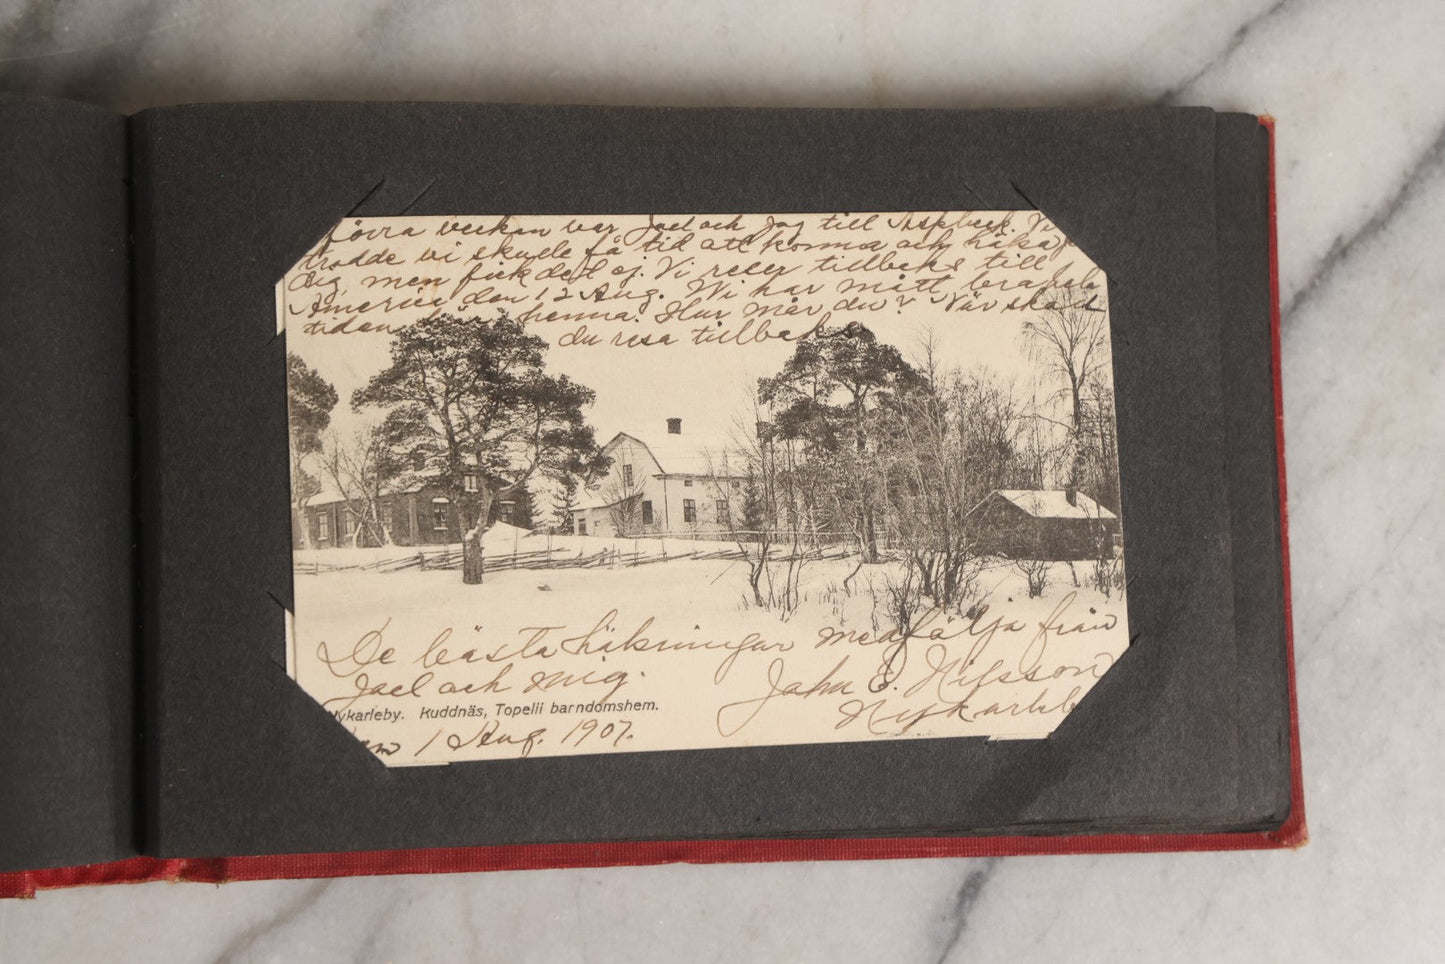 Förra veckan var Joel och Jag till Aspbeck. Vi
trodde vi skulle få tid att komma och hälsa på
dig, men fick det ej. Vi reser tillbaks till
America den 12 Aug. Wi har mått bra hela
tiden här hemma. Hur mår du? När skall
du resa tillbaks
De bästa hälsningar medfölja från
Joel och mig.
John E. Nilsson
Nykarleby
Nykarleby. Kuddnäs, Topelii barndomshem.
den 1 Aug. 1907.